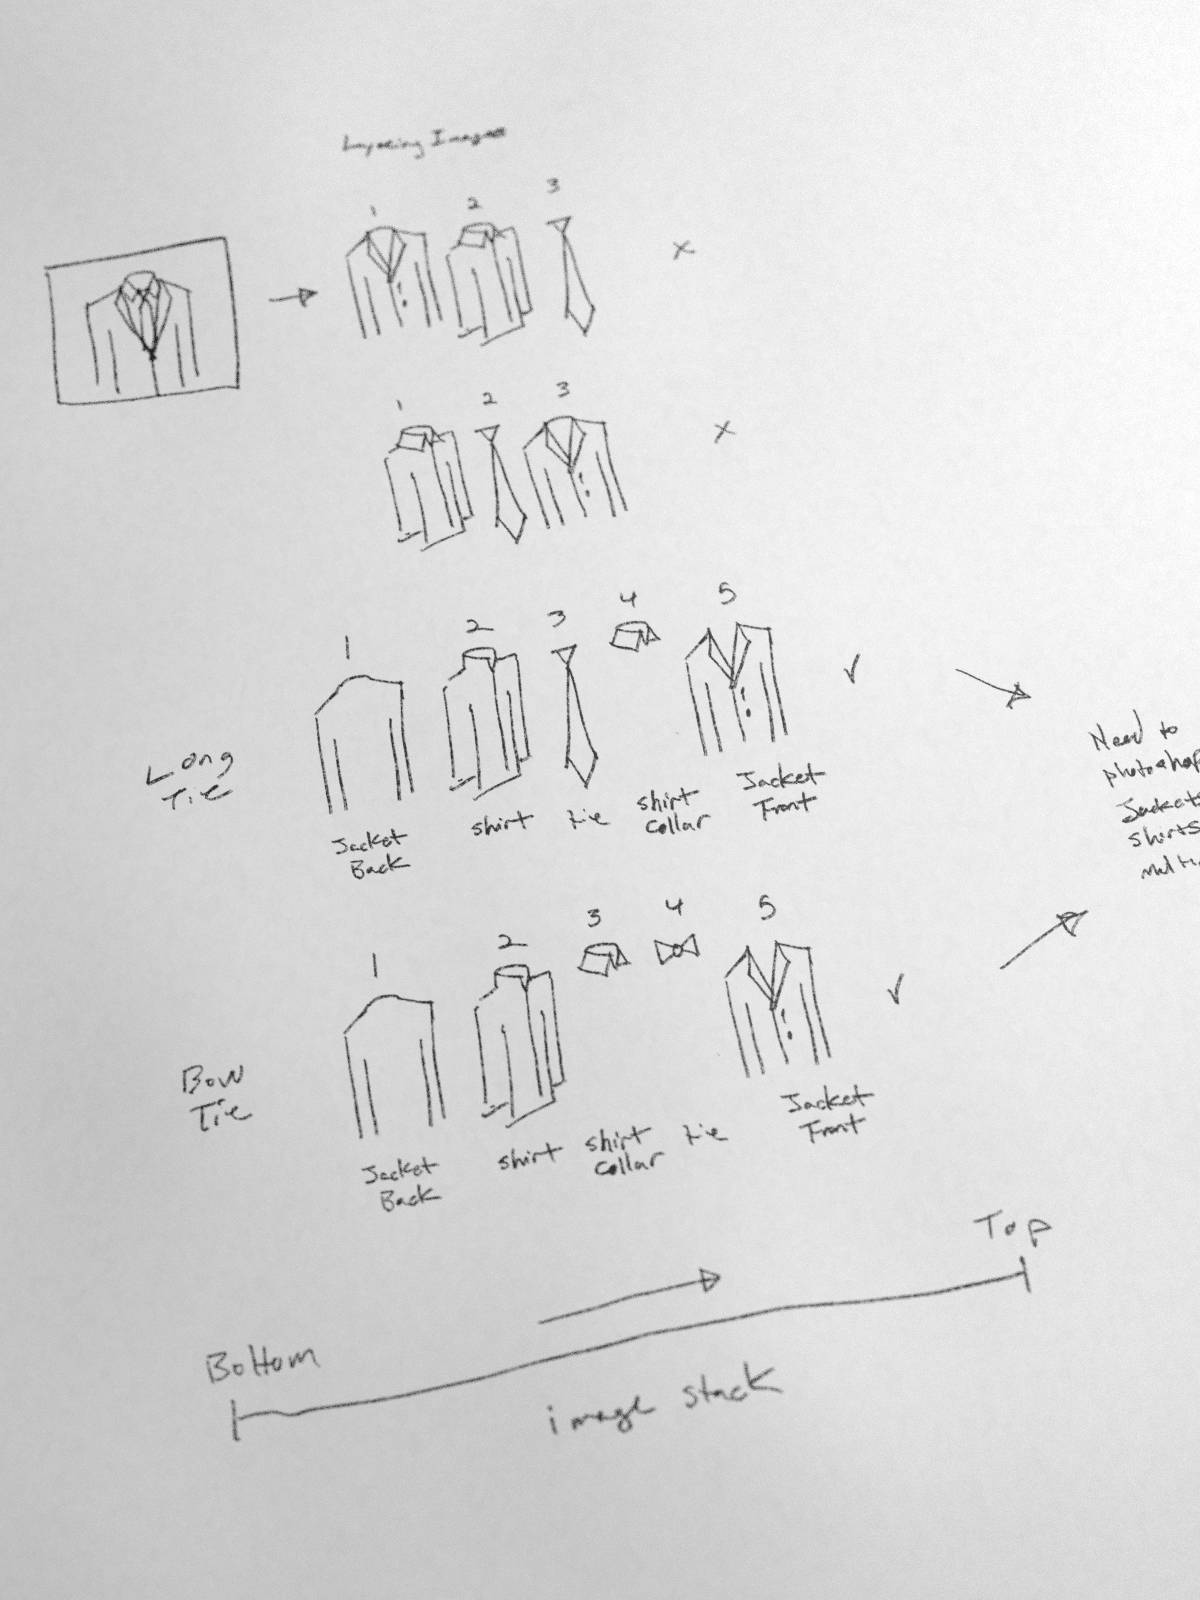 Layering Images
1 2 3
x
1 2 3
x
1 2 3 4 5
Long
Tie
Jacket
Back
shirt
tie
shirt
collar
Jacket
Front
✓
Need to
photoshop
Jackets
shirts
1 2 3 4 5
Bow
Tie
Jacket
Back
shirt
shirt
collar
tie
Jacket
Front
✓
Top
Bottom
image stack